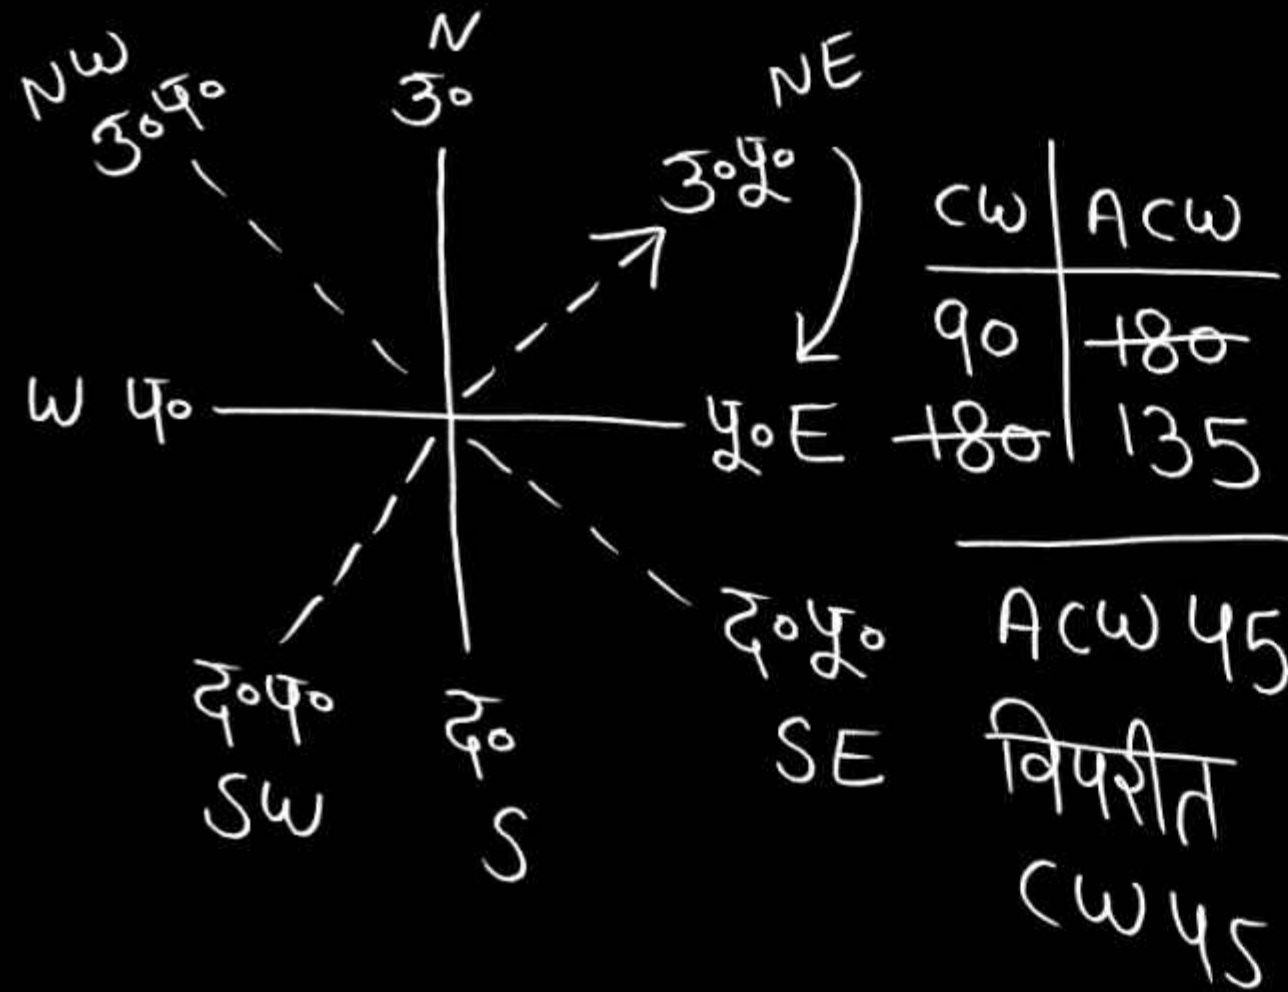 NW
उ०प०
N
उ०
NE
उ०पू०
W प०
पू० E
द०प०
SW
द०
S
द०पू०
SE
CW ACW
90 180
180 135
ACW 45
विपरीत
CW 45